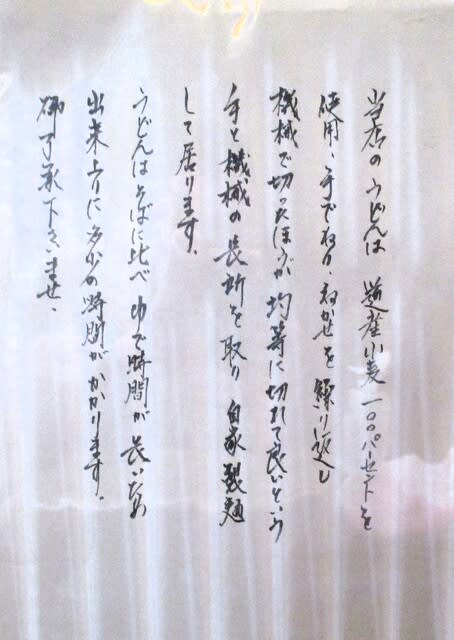 当店のうどんは 道産小麦一〇〇パーセントを
使用、手でねり、ねかせを繰り返し
機械で切ったほうが均等に切れて良いという
手と機械の長所を取り 自家製麺
して居ります。
うどんはそばに比べゆで時間が長いため
出来上りに多少の時間がかかります。
御了承下さいませ、